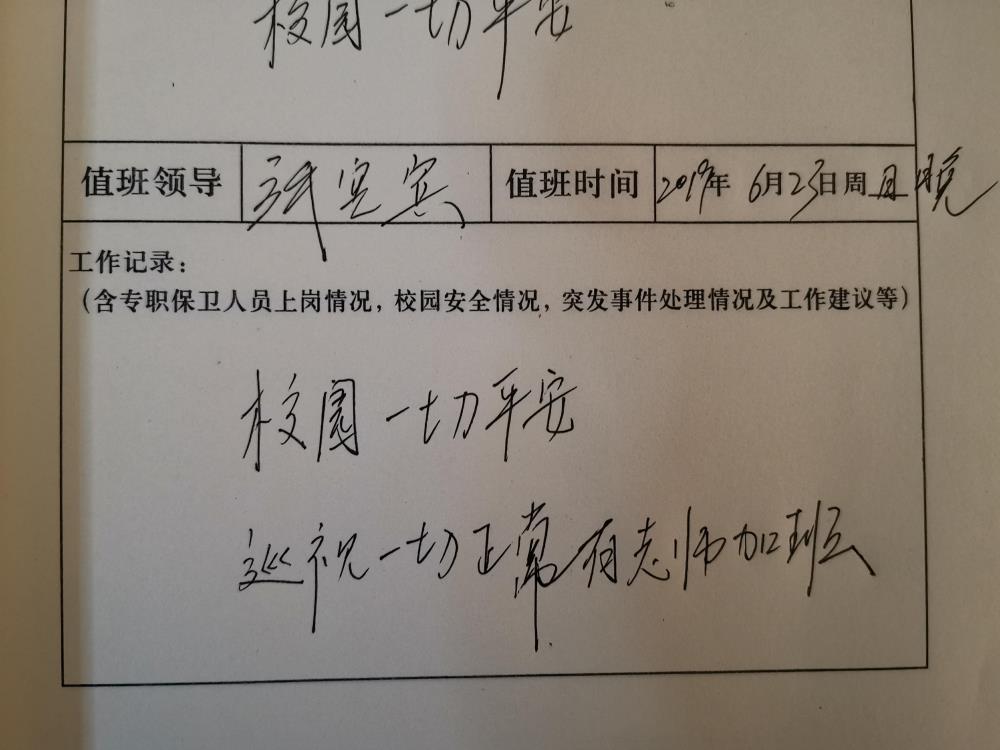 校园一切平安
值班领导 值班时间 2019年 6月23日周日晚
工作记录：
（含专职保卫人员上岗情况，校园安全情况，突发事件处理情况及工作建议等）
校园一切平安
巡视一切正常有老师加班